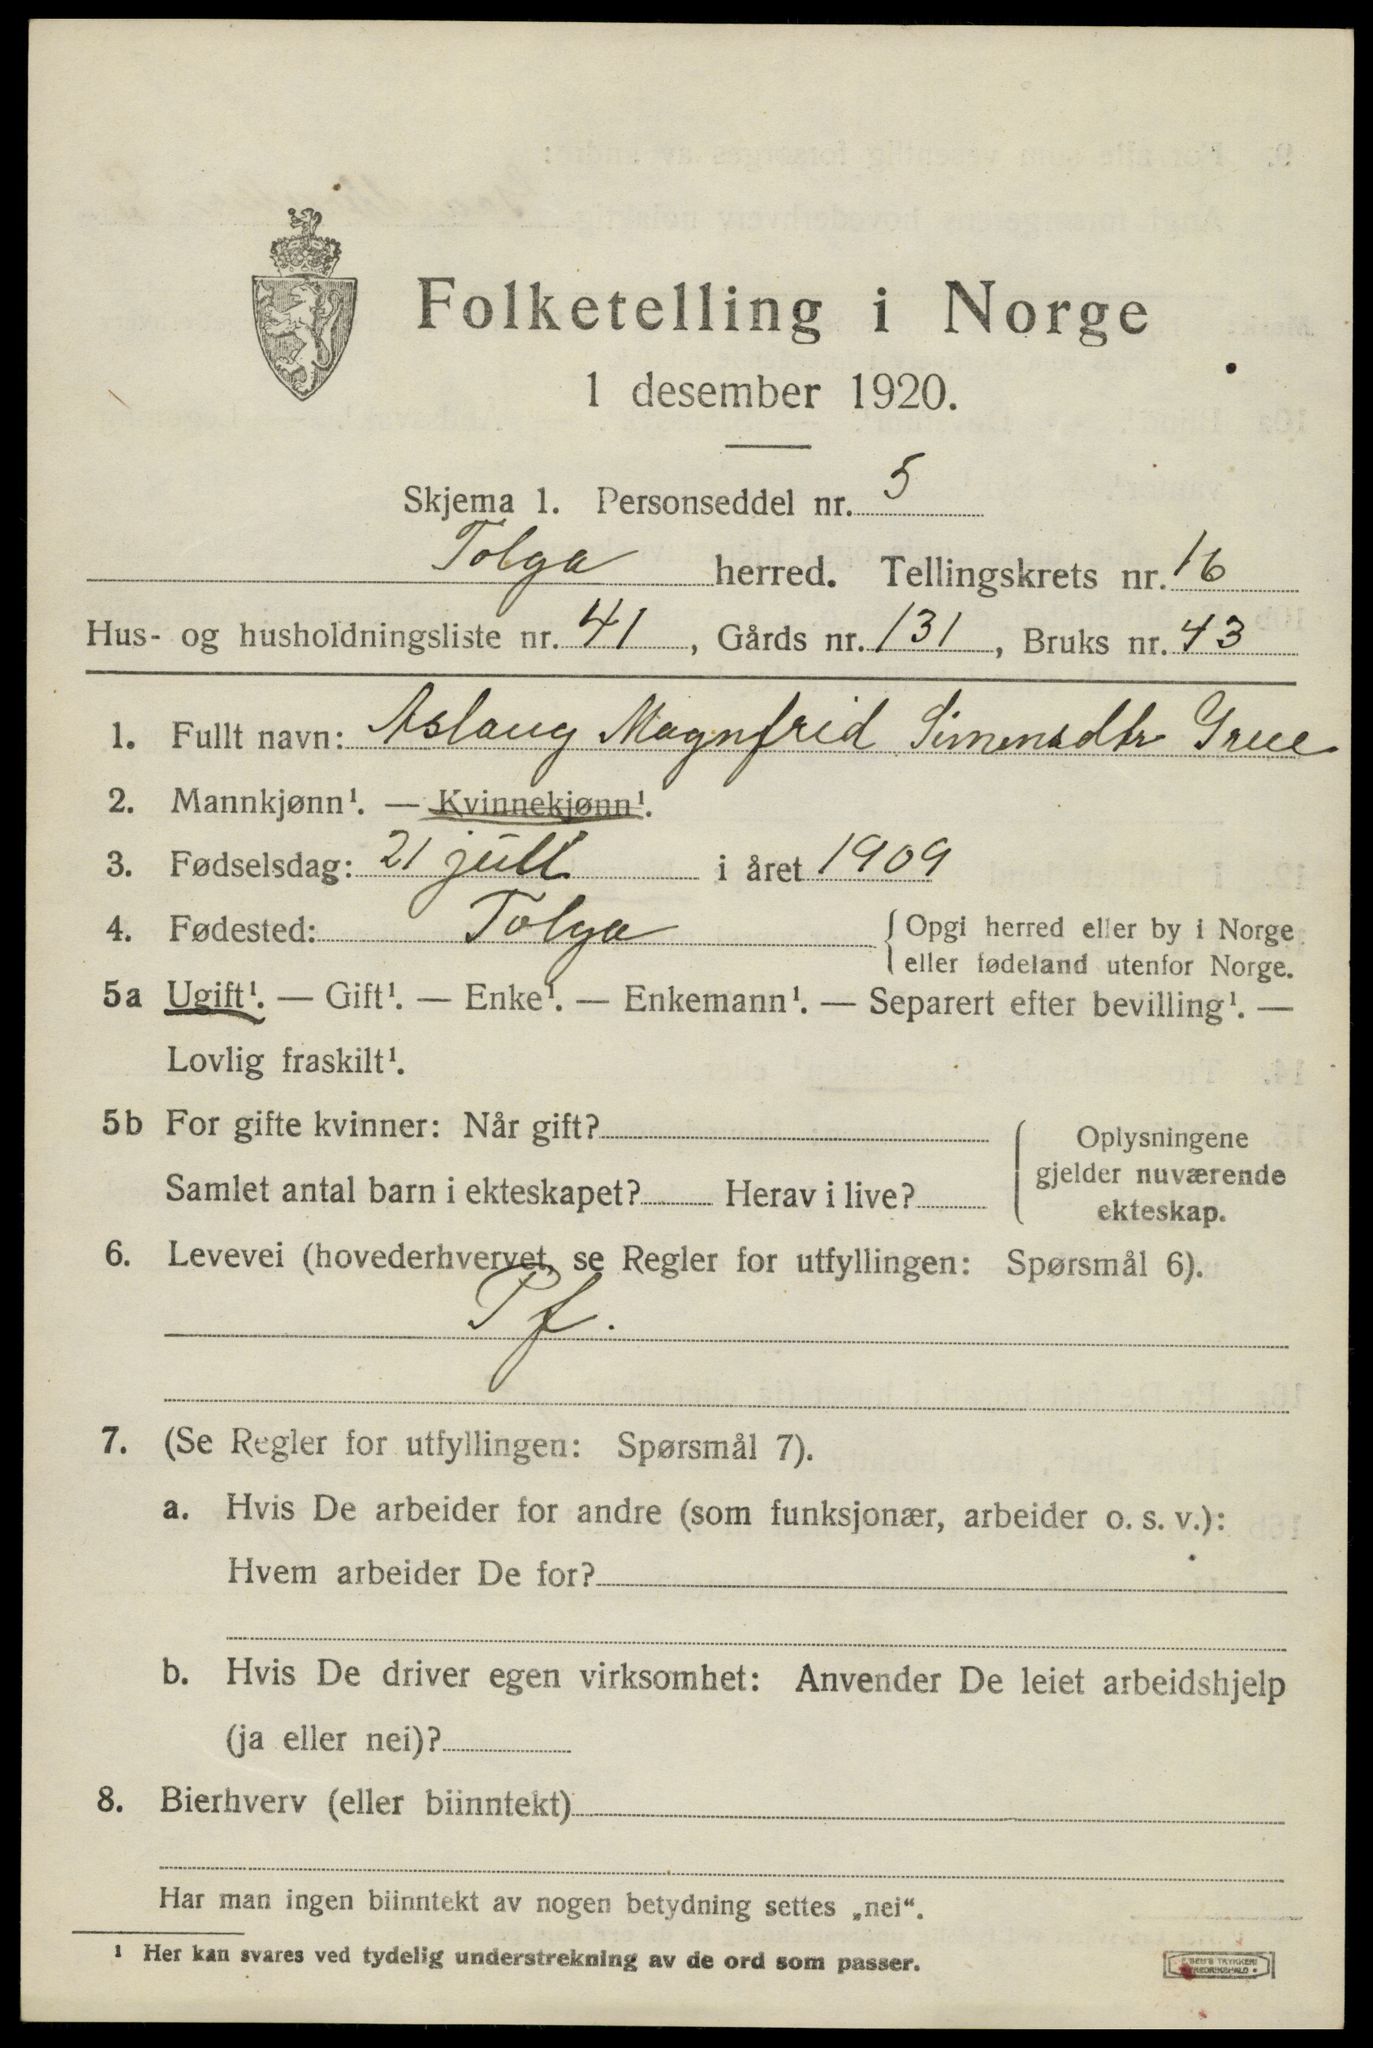 Folketelling i Norge
1 desember 1920.
Skjema 1. Personseddel nr. 5
Tolga herred. Tellingskrets nr. 16
Hus- og husholdningsliste nr. 41, Gårds nr. 131, Bruks nr. 43
1. Fullt navn: Aslaug Magnfrid Simensdtr Grue
2. Mannkjønn¹. — Kvinnekjønn¹.
3. Fødselsdag: 21 juli i året 1909
4. Fødested: Tolga {Opgi herred eller by i Norge
eller fødeland utenfor Norge.
5a Ugift¹. — Gift¹. — Enke¹. — Enkemann¹. — Separert efter bevilling¹. —
Lovlig fraskilt¹.
5b For gifte kvinner: Når gift?
Samlet antal barn i ekteskapet? Herav i live?
Oplysningene
gjelder nuværende
ekteskap.
6. Levevei (hovederhvervet, se Regler for utfyllingen: Spørsmål 6).
Pf.
7. (Se Regler for utfyllingen: Spørsmål 7).
a. Hvis De arbeider for andre (som funksjonær, arbeider o. s. v.):
Hvem arbeider De for?
b. Hvis De driver egen virksomhet: Anvender De leiet arbeidshjelp
(ja eller nei)?
8. Bierhverv (eller biinntekt)
Har man ingen biinntekt av nogen betydning settes „nei“.
¹ Her kan svares ved tydelig understrekning av de ord som passer.